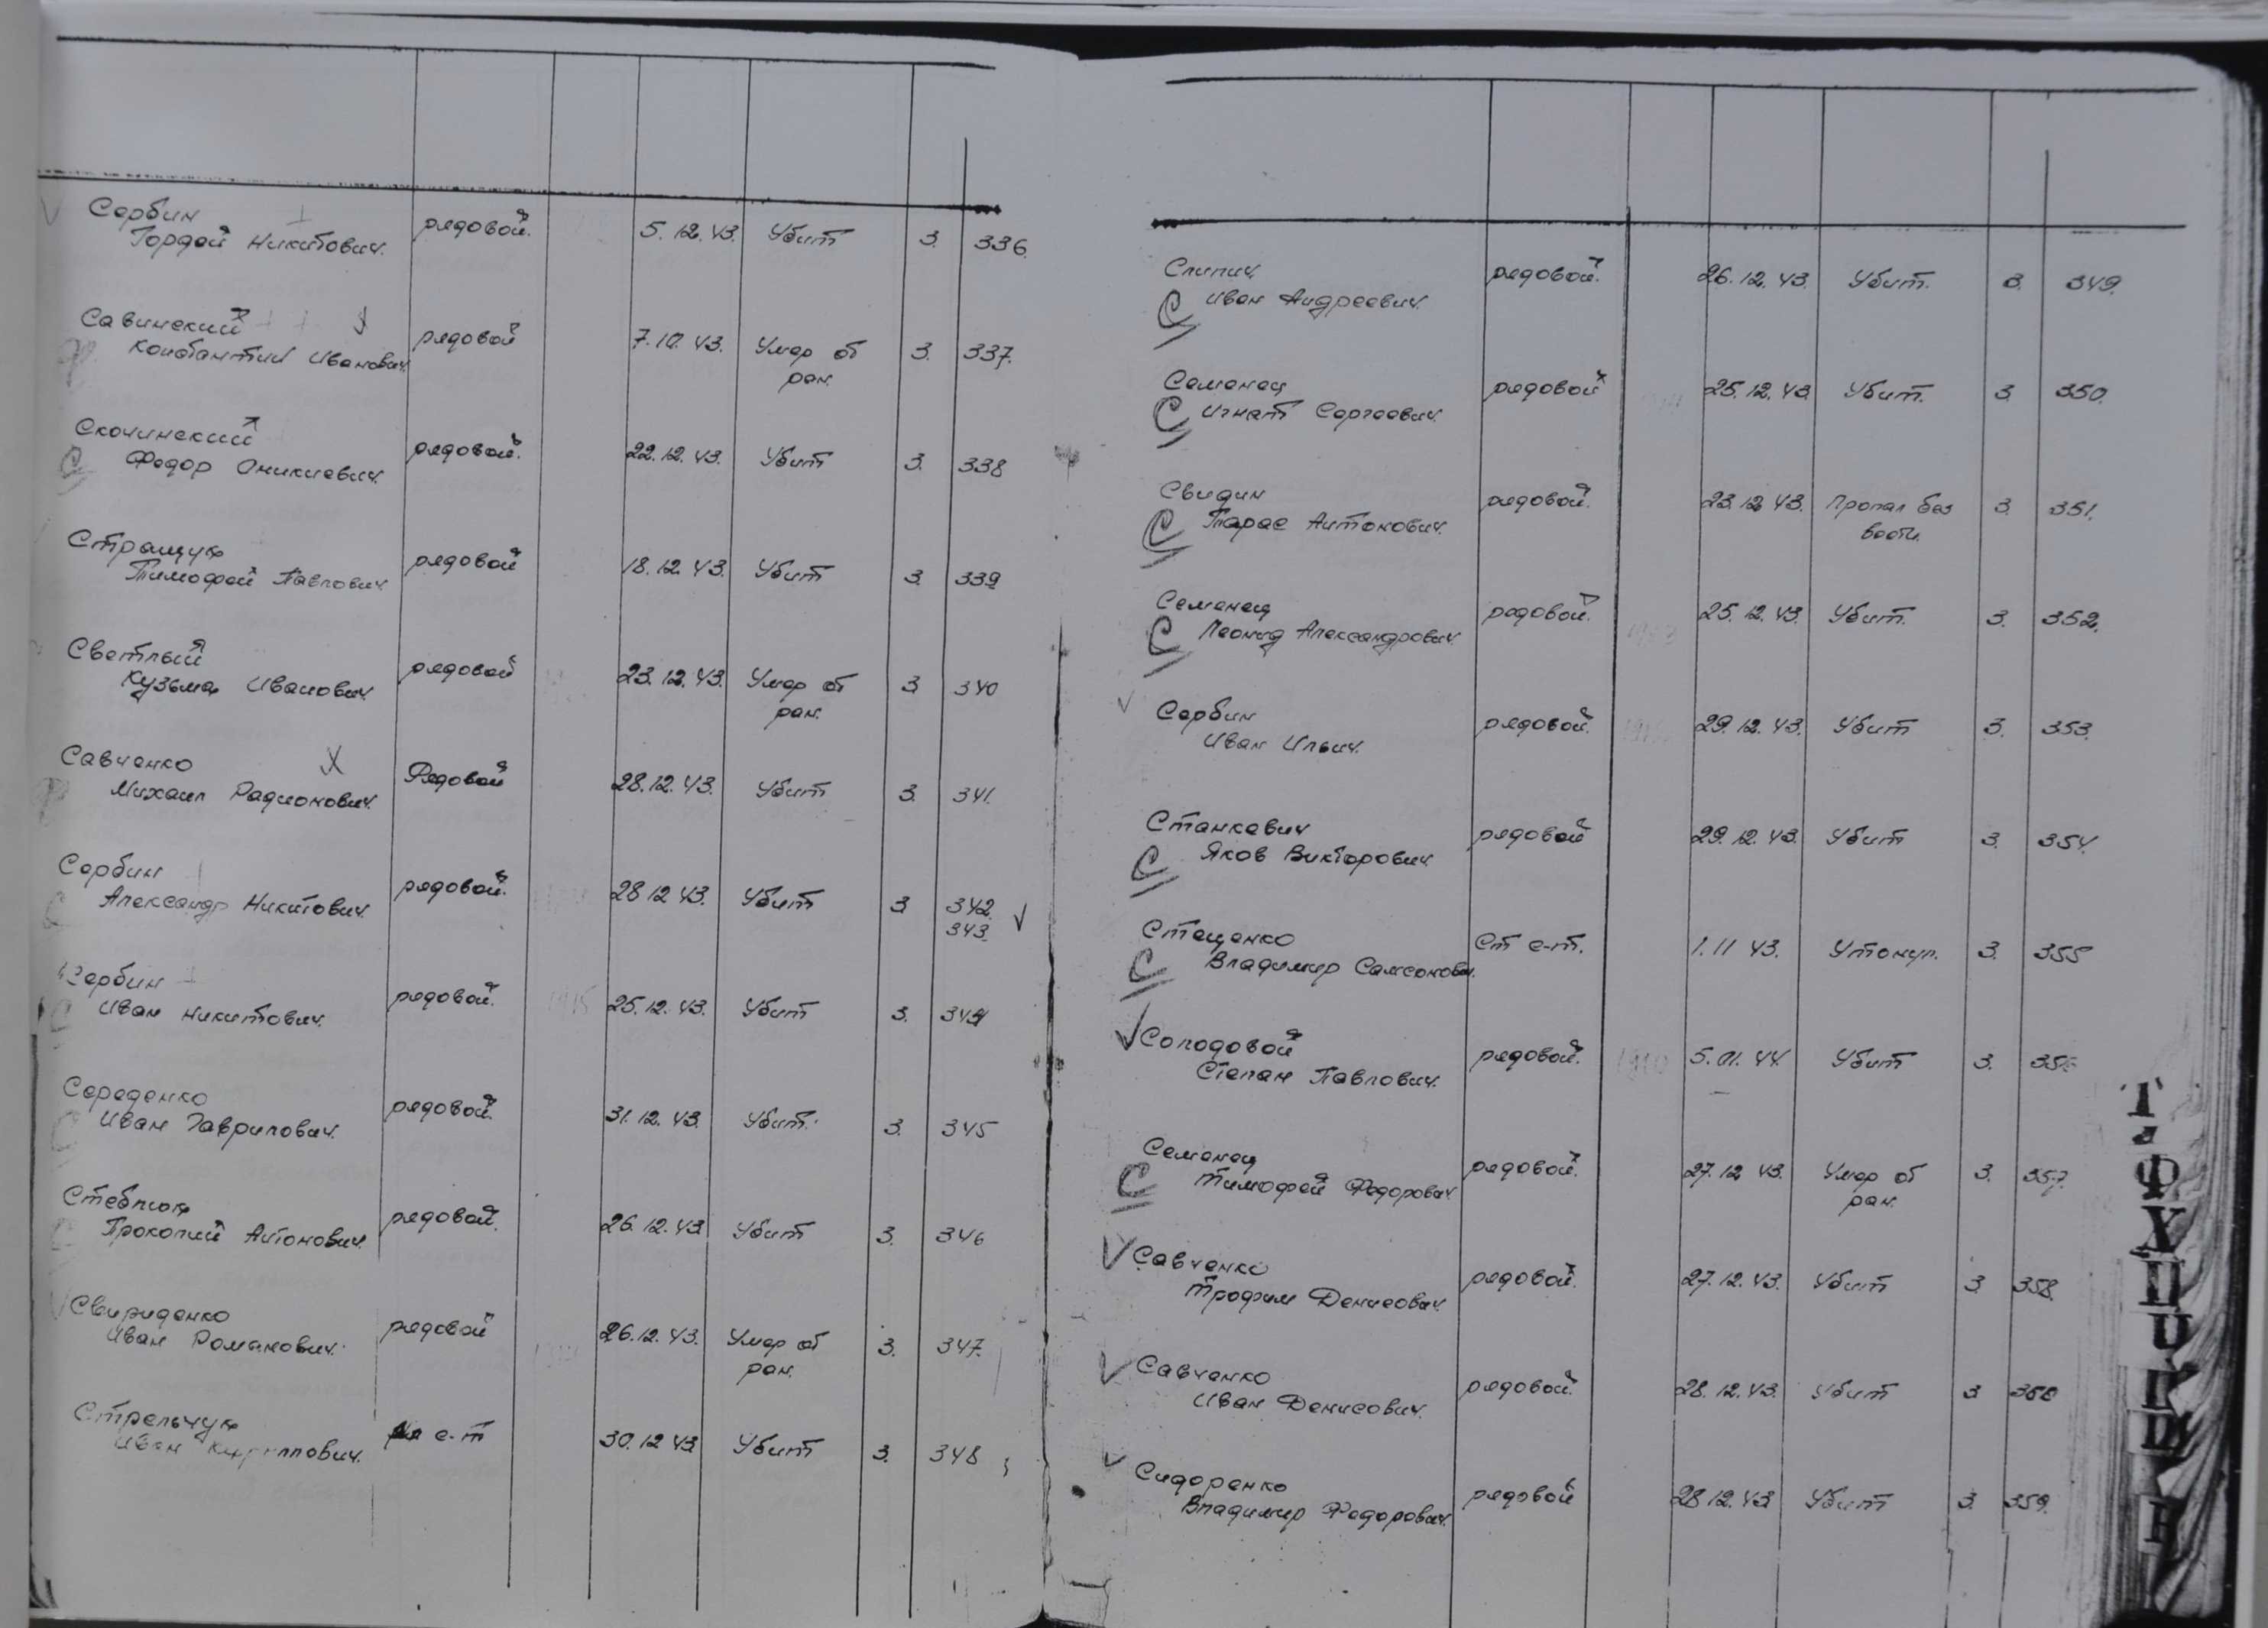 Сербин
Гордей Никитович. рядовой. 5.12.43. Убит 3. 336.
Савинский
Константин Иванович. рядовой 7.12.43. Умер от 3. 337.
ран.
Скочинский
Федор Оникиевич. рядовой. 22.12.43. Убит 3. 338
Стращук
Тимофей Павлович рядовой 18.12.43. Убит 3. 339
Светлый
Кузьма Иванович. рядовой 23.12.43. Умер от 3 340
ран.
Савченко
Михаил Радионович. Рядовой 28.12.43. Убит 3. 341.
Сербин
Александр Никитович. рядовой. 28 12 43. Убит 3 342.
343.
Сербин
Иван Никитович. рядовой. 1915 25.12.43. Убит 3. 344
Середенко
Иван Гаврилович. рядовой. 31.12.43. Убит. 3. 345
Стеблюк
Прокопий Антонович. рядовой. 26.12.43 Убит 3. 346
Свириденко
Иван Романович. рядовой 26.12.43. Умер от 3. 347.
ран.
Стрельчук
Иван Кириллович. с-т 30.12 43 Убит 3. 348
Слипич
С Иван Андреевич. рядовой. 26.12.43. Убит. 3. 349.
Семенец
С Игнат Сергеевич. рядовой 25.12.43. Убит. 3. 350.
Свидин
С Тарас Антонович. рядовой. 23.12 43. Пропал без 3. 351.
вести.
Семенец
С Леонид Александрович. рядовой. 1923 25.12.43. Убит. 3. 352.
Сербин
Иван Ильич. рядовой. 29.12.43. Убит 3. 353.
Станкевич
С Яков Викторович. рядовой 29.12.43. Убит 3. 354.
Стеценко
С Владимир Самсонович. Ст с-т. 1.11 43. Утонул. 3. 355
Солодовой
Степан Павлович. рядовой. 1910 5.01.44. Убит 3. 356
Семенец
С Тимофей Федорович. рядовой. 27.12 43. Умер от 3. 357.
ран.
Савченко
Трофим Денисович. рядовой. 27.12.43. Убит 3 358.
Савченко
Иван Денисович. рядовой. 28.12.43. Убит 3 360
Сидоренко
Владимир Федорович. рядовой 28 12.43 Убит 3. 359.
Т
Ф
Х
Ц